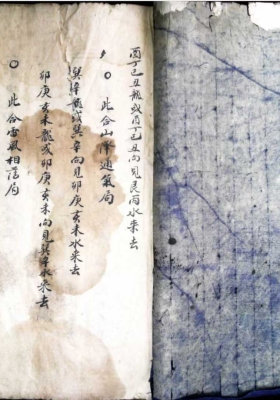 酉丁巳丑龍或酉丁巳丑向見艮丙水來去
○此合山澤通氣局
巽辛龍或巽辛向見卯庚亥未水來去
卯庚亥未龍或卯庚亥未向見巽辛水來去
○此合雷風相薄局